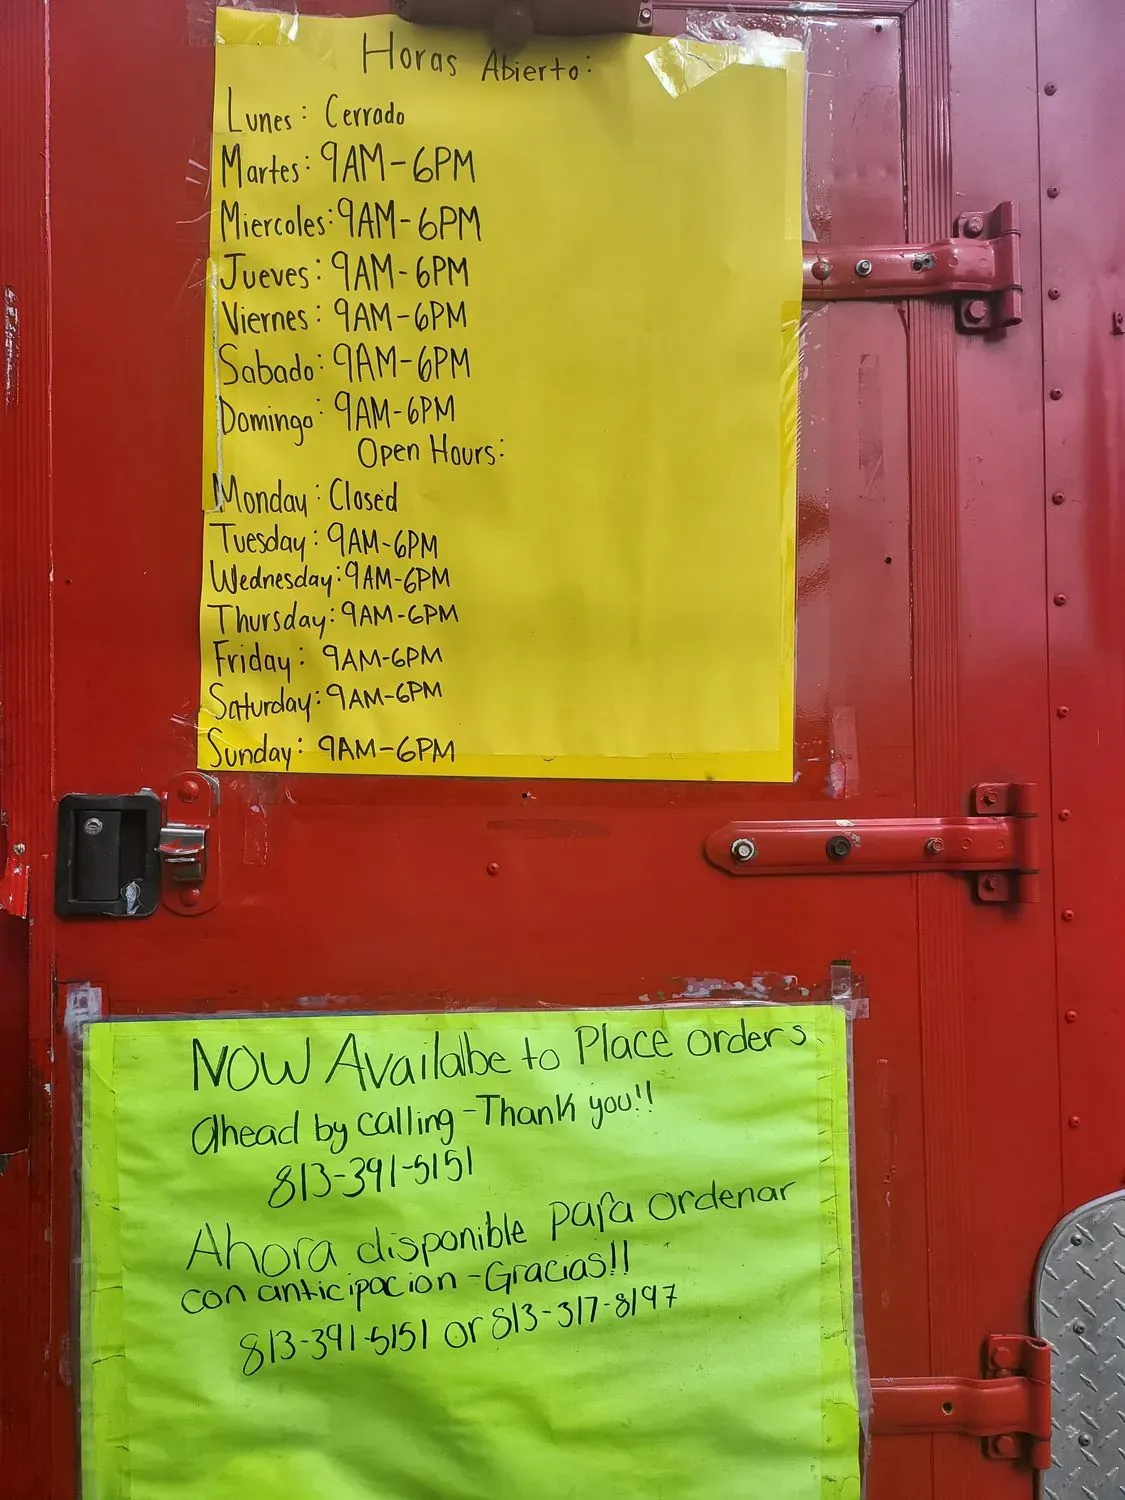 Horas Abierto:
Lunes: Cerrado
Martes: 9AM-6PM
Miercoles: 9AM-6PM
Jueves: 9AM-6PM
Viernes: 9AM-6PM
Sabado: 9AM-6PM
Domingo: 9AM-6PM
Open Hours:
Monday: Closed
Tuesday: 9AM-6PM
Wednesday: 9AM-6PM
Thursday: 9AM-6PM
Friday: 9AM-6PM
Saturday: 9AM-6PM
Sunday: 9AM-6PM
NOW Availalbe to Place orders
ahead by calling - Thank you!!
813-391-5151
Ahora disponible para ordenar
con anticipacion - Gracias!!
813-391-5151 or 813-317-8197